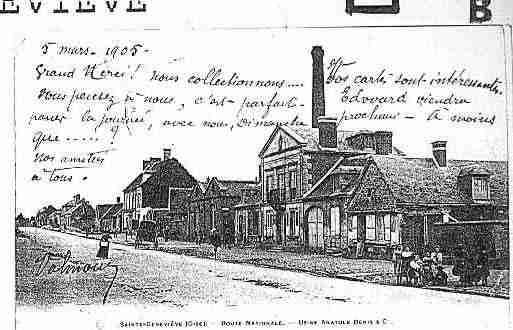 EVIÈVE B
5 mars - 1905 -
Grand Merci! Nous collectionnons.... Vos cartes sont intéressantes.
Vous pensez à nous, c'est parfait. Edouard viendra
pour la journée, avec nous, Dimanche prochain - à moins
que ......!
Nos amitiés
à tous.
SAINTE-GENEVIÈVE (OISE). - ROUTE NATIONALE. - USINE ANATOLE DENIS & C